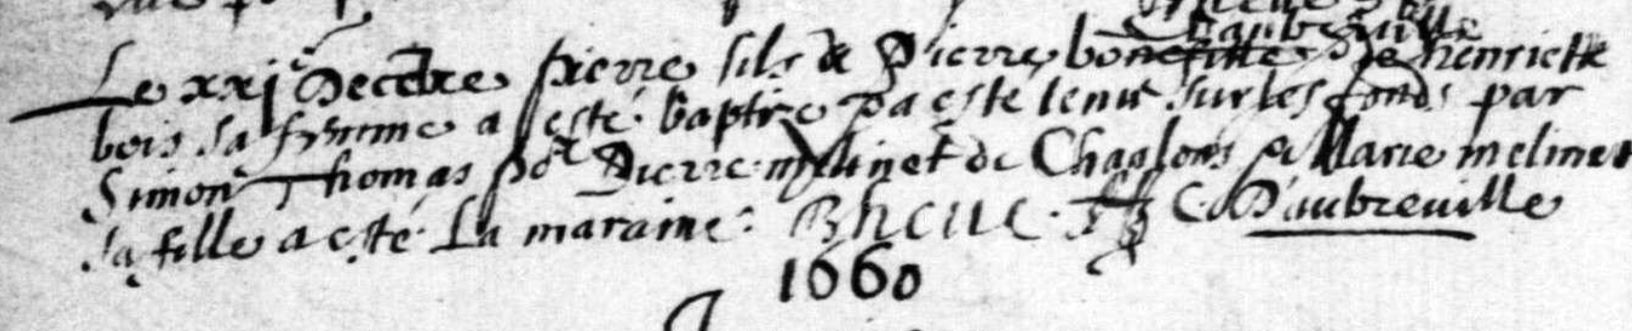 d'aubreuille
Le xxj Decẽbre pierre fils de Pierre bonnefille & de henriette
bois sa femme a esté baptizé & a esté tenu sur les fonds par
Simon Thomas po.r Pierre melinet de Chaalons & Marie melinet
sa fille a esté La maraine. C. D'aubreuille
1660